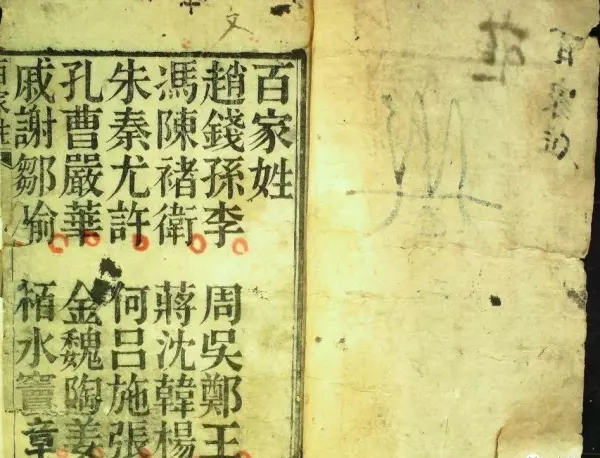 百家姓
趙錢孫李 周吳鄭王
馮陳褚衛 蔣沈韓楊
朱秦尤許 何吕施張
孔曹嚴華 金魏陶姜
戚謝鄒喻 栢水竇章
百家姓
文